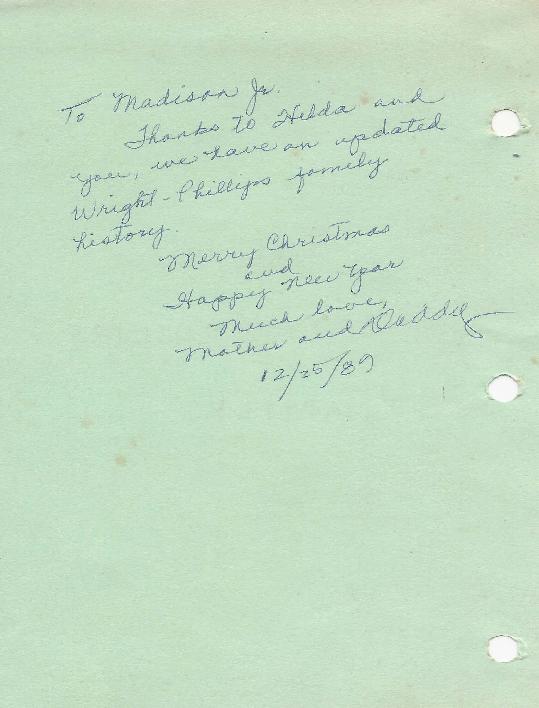 To Madison Jr.
Thanks to Hilda and
you, we have an updated
Wright-Phillips family
history.
Merry Christmas
and
Happy New Year
Much love,
Mother and Daddy
12/25/89